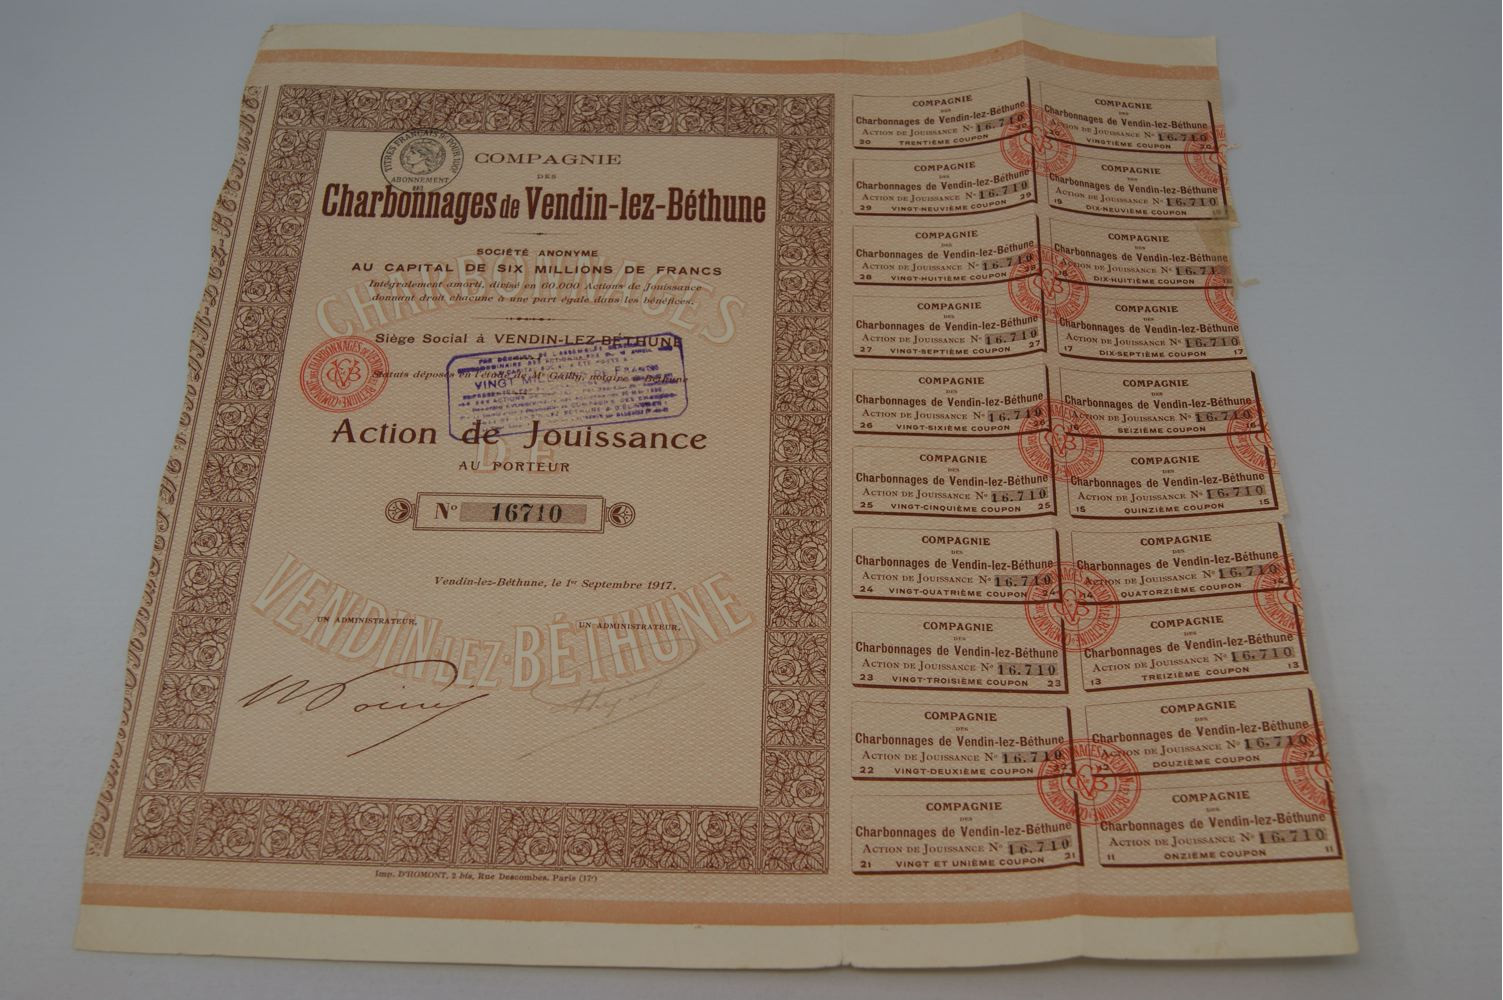 TITRES FRANÇAIS
ABONNEMENT
COMPAGNIE
DES
Charbonnages de Vendin-lez-Béthune
SOCIÉTÉ ANONYME
AU CAPITAL DE SIX MILLIONS DE FRANCS
Intégralement amorti, divisé en 60.000 Actions de Jouissance
donnant droit chacune à une part égale dans les bénéfices.
Siège Social à VENDIN-LEZ-BÉTHUNE
Statuts déposés en l'étude de Me Gailly, notaire à Béthune
VINGT MILLIONS DE FRANCS
Action de Jouissance
AU PORTEUR
No 16710
Vendin-lez-Béthune, le 1er Septembre 1917.
UN ADMINISTRATEUR,
UN ADMINISTRATEUR,
CHARBONNAGES
DE
VENDIN-LEZ-BÉTHUNE
Imp. D'HOMONT, 2 bis, Rue Descombes, Paris (17e)
COMPAGNIE
DES
Charbonnages de Vendin-lez-Béthune
ACTION DE JOUISSANCE No 16.710
30 TRENTIÈME COUPON 30
COMPAGNIE
DES
Charbonnages de Vendin-lez-Béthune
ACTION DE JOUISSANCE No 16.710
20 VINGTIÈME COUPON 20
COMPAGNIE
DES
Charbonnages de Vendin-lez-Béthune
ACTION DE JOUISSANCE No 16.710
29 VINGT-NEUVIÈME COUPON 29
COMPAGNIE
DES
Charbonnages de Vendin-lez-Béthune
ACTION DE JOUISSANCE No 16.710
19 DIX-NEUVIÈME COUPON 19
COMPAGNIE
DES
Charbonnages de Vendin-lez-Béthune
ACTION DE JOUISSANCE No 16.710
28 VINGT-HUITIÈME COUPON 28
COMPAGNIE
DES
Charbonnages de Vendin-lez-Béthune
ACTION DE JOUISSANCE No 16.710
18 DIX-HUITIÈME COUPON
COMPAGNIE
DES
Charbonnages de Vendin-lez-Béthune
ACTION DE JOUISSANCE No 16.710
27 VINGT-SEPTIÈME COUPON 27
COMPAGNIE
DES
Charbonnages de Vendin-lez-Béthune
ACTION DE JOUISSANCE No 16.710
17 DIX-SEPTIÈME COUPON 17
COMPAGNIE
DES
Charbonnages de Vendin-lez-Béthune
ACTION DE JOUISSANCE No 16.710
26 VINGT-SIXIÈME COUPON 26
COMPAGNIE
DES
Charbonnages de Vendin-lez-Béthune
ACTION DE JOUISSANCE No 16.710
16 SEIZIÈME COUPON 16
COMPAGNIE
DES
Charbonnages de Vendin-lez-Béthune
ACTION DE JOUISSANCE No 16.710
25 VINGT-CINQUIÈME COUPON 25
COMPAGNIE
DES
Charbonnages de Vendin-lez-Béthune
ACTION DE JOUISSANCE No 16.710
15 QUINZIÈME COUPON 15
COMPAGNIE
DES
Charbonnages de Vendin-lez-Béthune
ACTION DE JOUISSANCE No 16.710
24 VINGT-QUATRIÈME COUPON 24
COMPAGNIE
DES
Charbonnages de Vendin-lez-Béthune
ACTION DE JOUISSANCE No 16.710
14 QUATORZIÈME COUPON 14
COMPAGNIE
DES
Charbonnages de Vendin-lez-Béthune
ACTION DE JOUISSANCE No 16.710
23 VINGT-TROISIÈME COUPON 23
COMPAGNIE
DES
Charbonnages de Vendin-lez-Béthune
ACTION DE JOUISSANCE No 16.710
13 TREIZIÈME COUPON 13
COMPAGNIE
DES
Charbonnages de Vendin-lez-Béthune
ACTION DE JOUISSANCE No 16.710
22 VINGT-DEUXIÈME COUPON 22
COMPAGNIE
DES
Charbonnages de Vendin-lez-Béthune
ACTION DE JOUISSANCE No 16.710
12 DOUZIÈME COUPON 12
COMPAGNIE
DES
Charbonnages de Vendin-lez-Béthune
ACTION DE JOUISSANCE No 16.710
21 VINGT ET UNIÈME COUPON 21
COMPAGNIE
DES
Charbonnages de Vendin-lez-Béthune
ACTION DE JOUISSANCE No 16.710
11 ONZIÈME COUPON 11